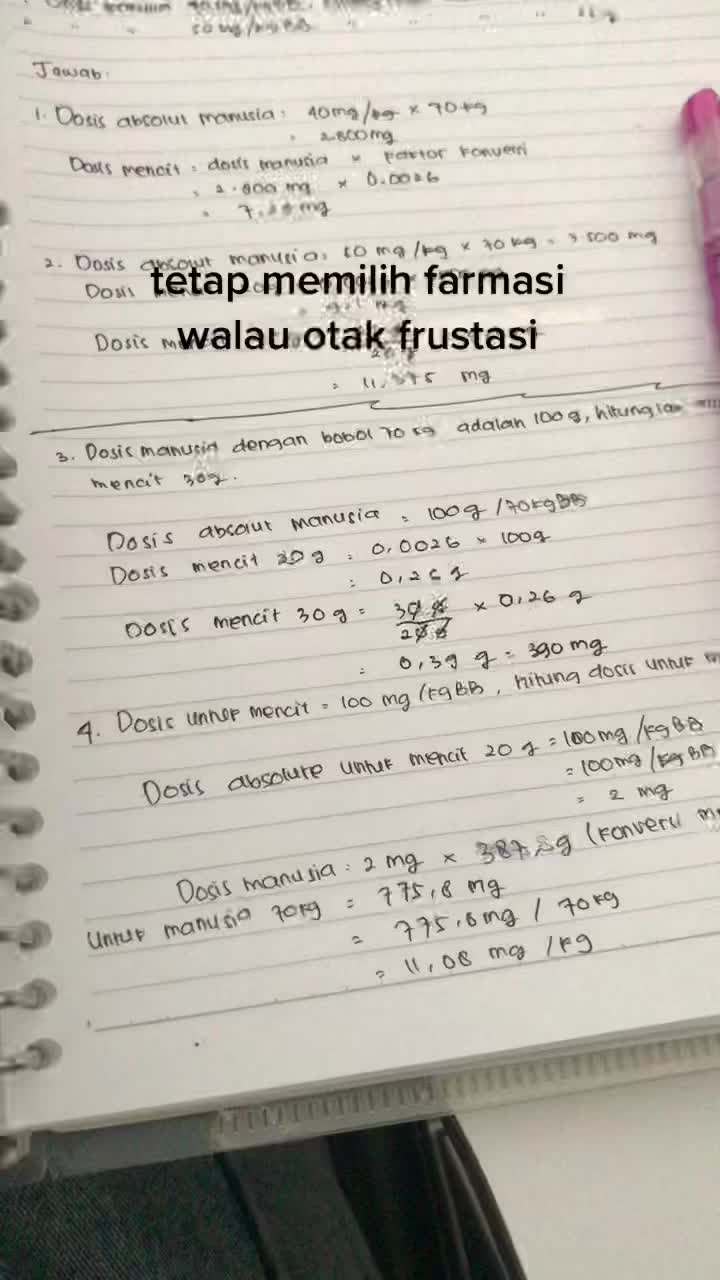 50 mg/kgBB
Jawab:
1. Dosis absolut manusia : 40mg/kg × 70kg
= 2.800mg
Dosis mencit = dosis manusia × Faktor konversi
= 2.800 mg × 0.0026
= 7.28 mg
2. Dosis absolut manusia: 50 mg/kg × 70 kg = 3500 mg
Dosis
tetap memilih farmasi
Dosis
walau otak frustasi
= 11.375 mg
3. Dosis manusia dengan bobot 70 kg adalah 100g, hitunglah
mencit 30g.
Dosis absolut manusia = 100g /70kgBB
Dosis mencit 20g = 0,0026 × 100g
= 0,26 g
Dosis mencit 30g = 30 g × 0,26 g
20 g
= 0,39 g = 390 mg
4. Dosis untuk mencit = 100 mg/kgBB, hitung dosis untuk
Dosis absolute untuk mencit 20 g = 100mg/kgBB
= 100mg/kgBB
= 2 mg
Dosis manusia = 2 mg × 387,9g (konversi
= 775,8 mg
Untuk manusia 70kg = 775,8mg / 70kg
= 11,08 mg /kg